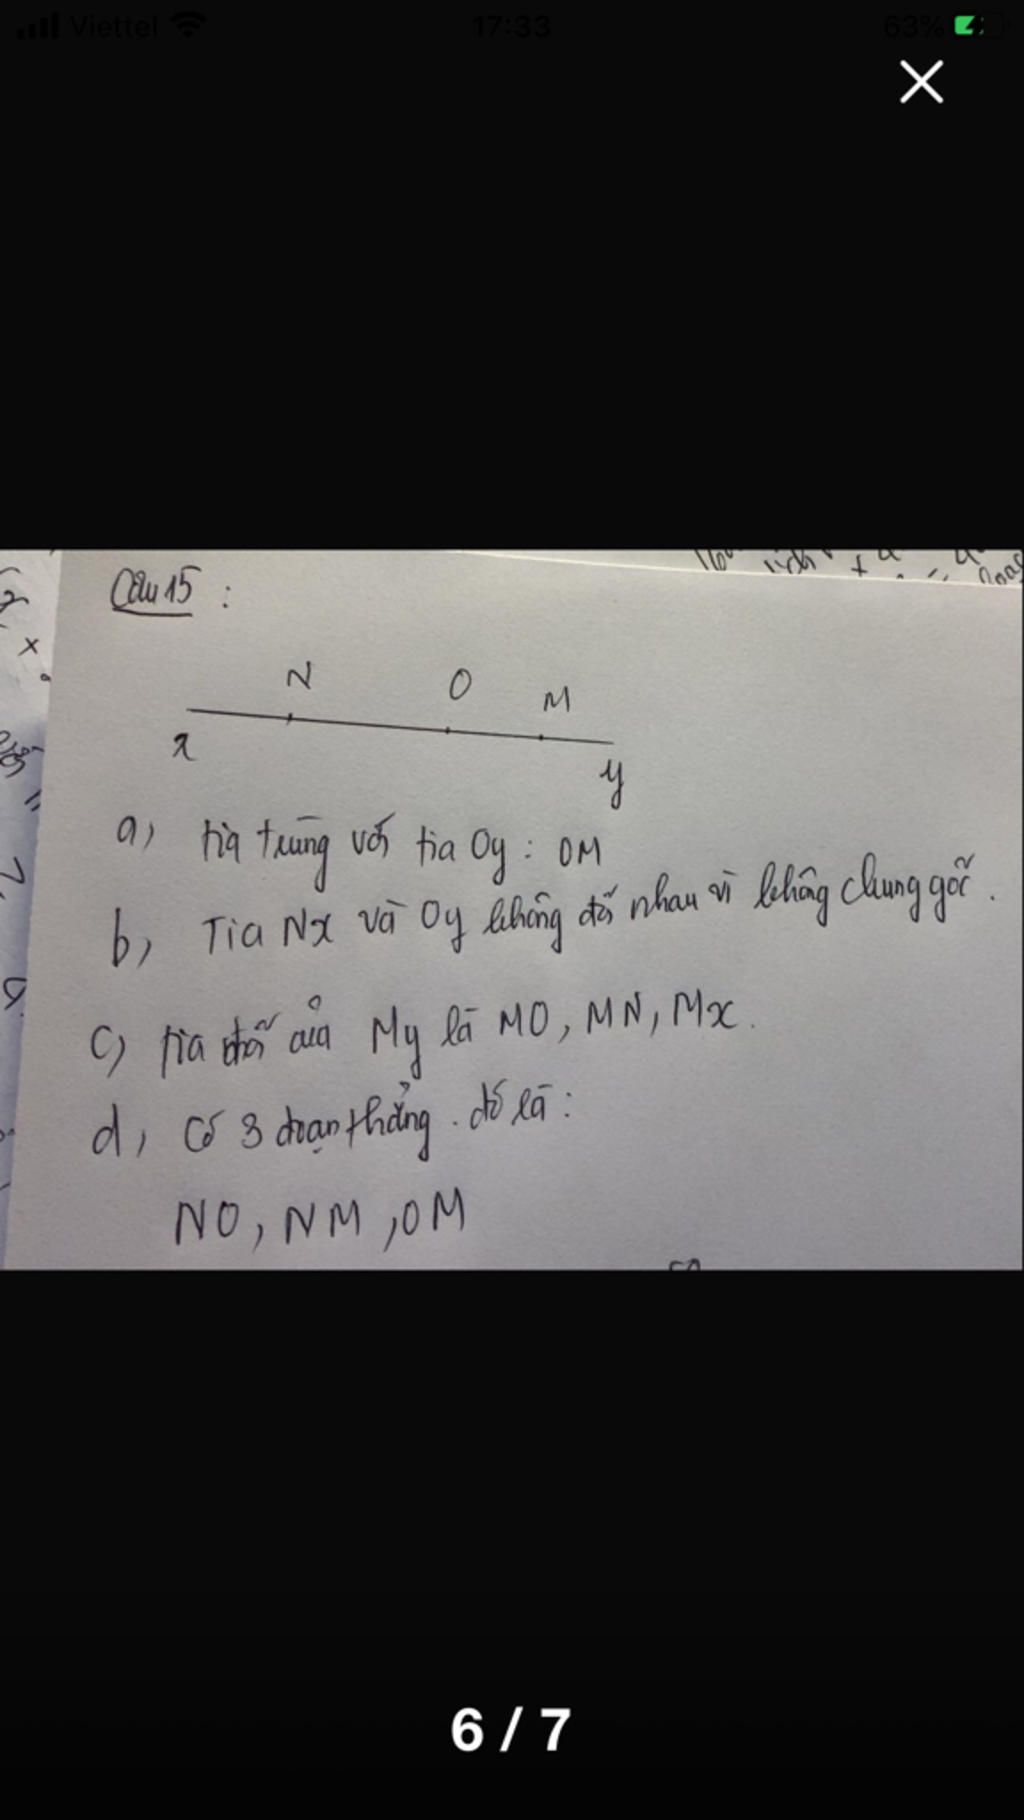 Viettel 17:33 63%
Câu 15 :
N O M
x y
a) tia trùng với tia Oy : OM
b, Tia Nx và Oy không đối nhau vì không chung gốc.
c) tia đối của My là MO, MN, Mx.
d, Có 3 đoạn thẳng. đó là :
NO, NM, OM
6 / 7